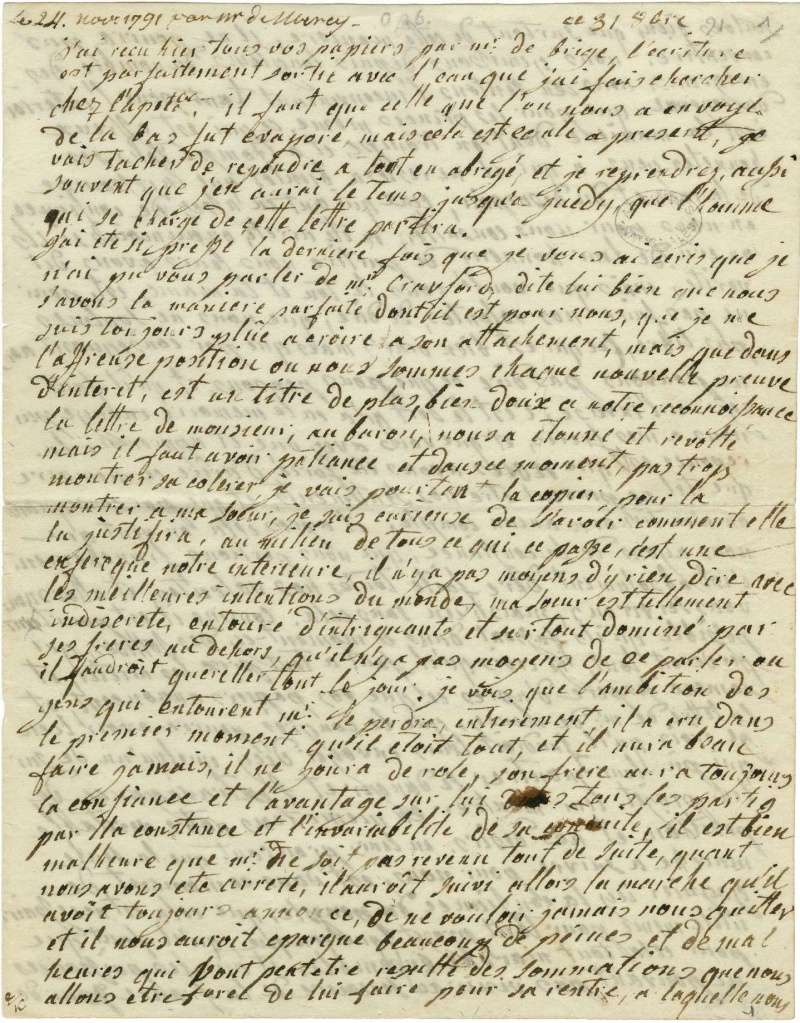 le 24. nov. 1791 par mr de Mercy
ce 31 8bre
j'ai recu hier tous vos papiers par mr. de brige, l'ecriture
est parfaitement sortie avec l'eau que j'ai fais chercher
chez l'apotre, il faut que celle que l'on nous a envoye
de la bas fut evaporé, mais cela est egale a present, je
vais tacher de repondre a tout en abregé et je reprendres, aussi
souvent que j'en aurai le tems jusqu'a jeudy, que l'homme
qui se charge de cette lettre partira.
j'ai ete si presse la derniere fois que je vous ai ecris que je
n'ai pu vous parler de mr. Crawford, dite lui bien que nous
s'avons la maniere parfaite dont il est pour nous, que je me
suis toujours plûe a croire a son attachement, mais que dans
l'affreuse position ou nous sommes chaque nouvelle preuve
d'interet, est un titre de plus, bien doux a notre reconnoissance
la lettre de monsieur, au baron, nous a etonné et revolté
mais il faut avoir patiance et dans ce moment, pas trop
montrer sa colere, je vais pourtant la copier pour la
montrer a ma soeur, je suis curieuse de s'avoir comment elle
la justifira, au milieu de tous ce qui ce passe, c'est une
enfer que notre interieure, il n'y a pas moyens d'y rien dire avec
les meilleures intentions du monde, ma soeur est tellement
indiscrete, entoure d'intriguants et surtout dominé par
ses freres au dehors, qu'il n'y a pas moyens de ce parler ou
il faudroit quereller tout le jour. je vois que l'ambition des
gens qui entourent mr. le perdra entierement, il a cru dans
le premier moment qu'il etoit tout, et il aura beau
faire jamais, il ne joura de role, son frere aura toujours
la confiance et l'avantage sur lui dans tous les partis
par la constance et l'invariabilité de sa conduite, il est bien
malheure que mr. ne soit pas revenu tout de suite, quant
nous avons ete arrete, il auroit suivi allors la marche qu'il
avoit toujours annonce, de ne vouloir jamais nous quitter
et il nous auroit epargne beaucoup de peines et de mal
heures qui vont peutetre resulté des sommations que nous
allons etre forcé de lui faire pour sa rentre, a laquelle nous